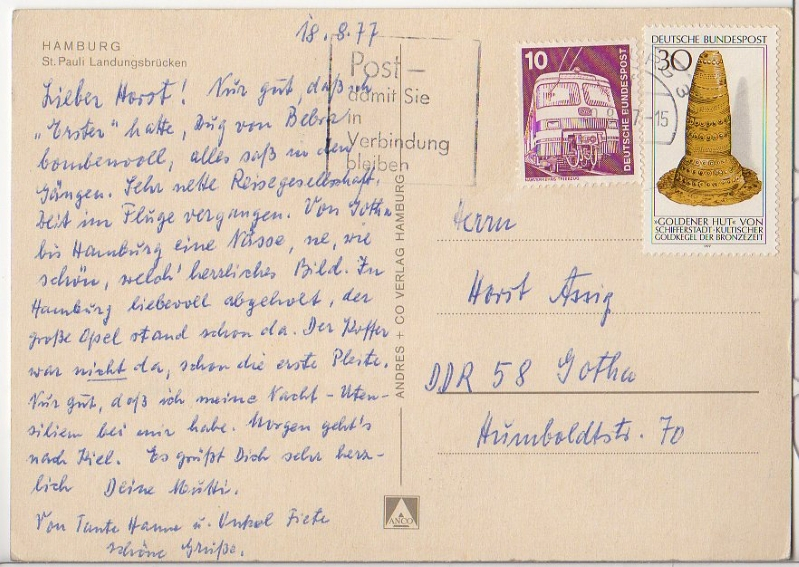 HAMBURG
St. Pauli Landungsbrücken
18.8.77
Lieber Horst! Nur gut, daß ich
„Erster" hatte, Zug von Bebra
bombenvoll, alles saß in den
Gängen. Sehr nette Reisegesellschaft.
Zeit im Fluge vergangen. Von Gotha
bis Hamburg eine Nässe, ne, wie
schön, welch' herzliches Bild. In
Hamburg liebevoll abgeholt, der
große Opel stand schon da. Der Koffer
war nicht da, schon die erste Pleite.
Nur gut, daß ich meine Nacht-Uten-
silien bei mir habe. Morgen geht's
nach Kiel. Es grüßt Dich sehr herz-
lich Deine Mutti.
Von Tante Hanne u. Onkel Fiete
schöne Grüße.
Post-
damit Sie
in
Verbindung
bleiben
ANDRES + CO VERLAG HAMBURG
ANCO
10
DEUTSCHE BUNDESPOST
DEUTSCHE BUNDESPOST
30
»GOLDENER HUT« VON
SCHIFFERSTADT·KULTISCHER
GOLDKEGEL DER BRONZEZEIT
-15
Herrn
Horst Assig
DDR 58 Gotha
Humboldtstr. 70